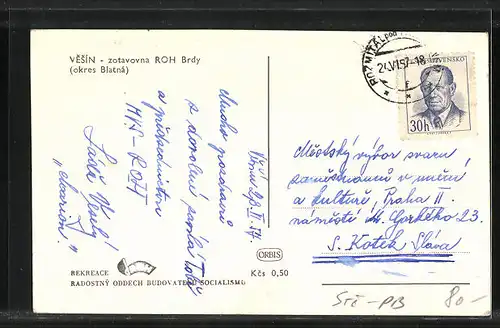 VĚŠÍN - zotavovna ROH Brdy
(okres Blatná)
ROŽMITÁL pod
24.VI.57-18
ČESKOSLOVENSKO
30h
Věšín
Mnoho pozdravů
z dovolené
a předsednictvu
MV-ROH
Městský výbor svazu
zaměstnanců v umění
a kultuře, Praha II
náměstí M. Gorkého 23.
S. Kotek Sláva
ORBIS
Kčs 0,50
REKREACE
RADOSTNÝ ODDECH BUDOVATELŮ SOCIALISMU
STŘ-PB
80-